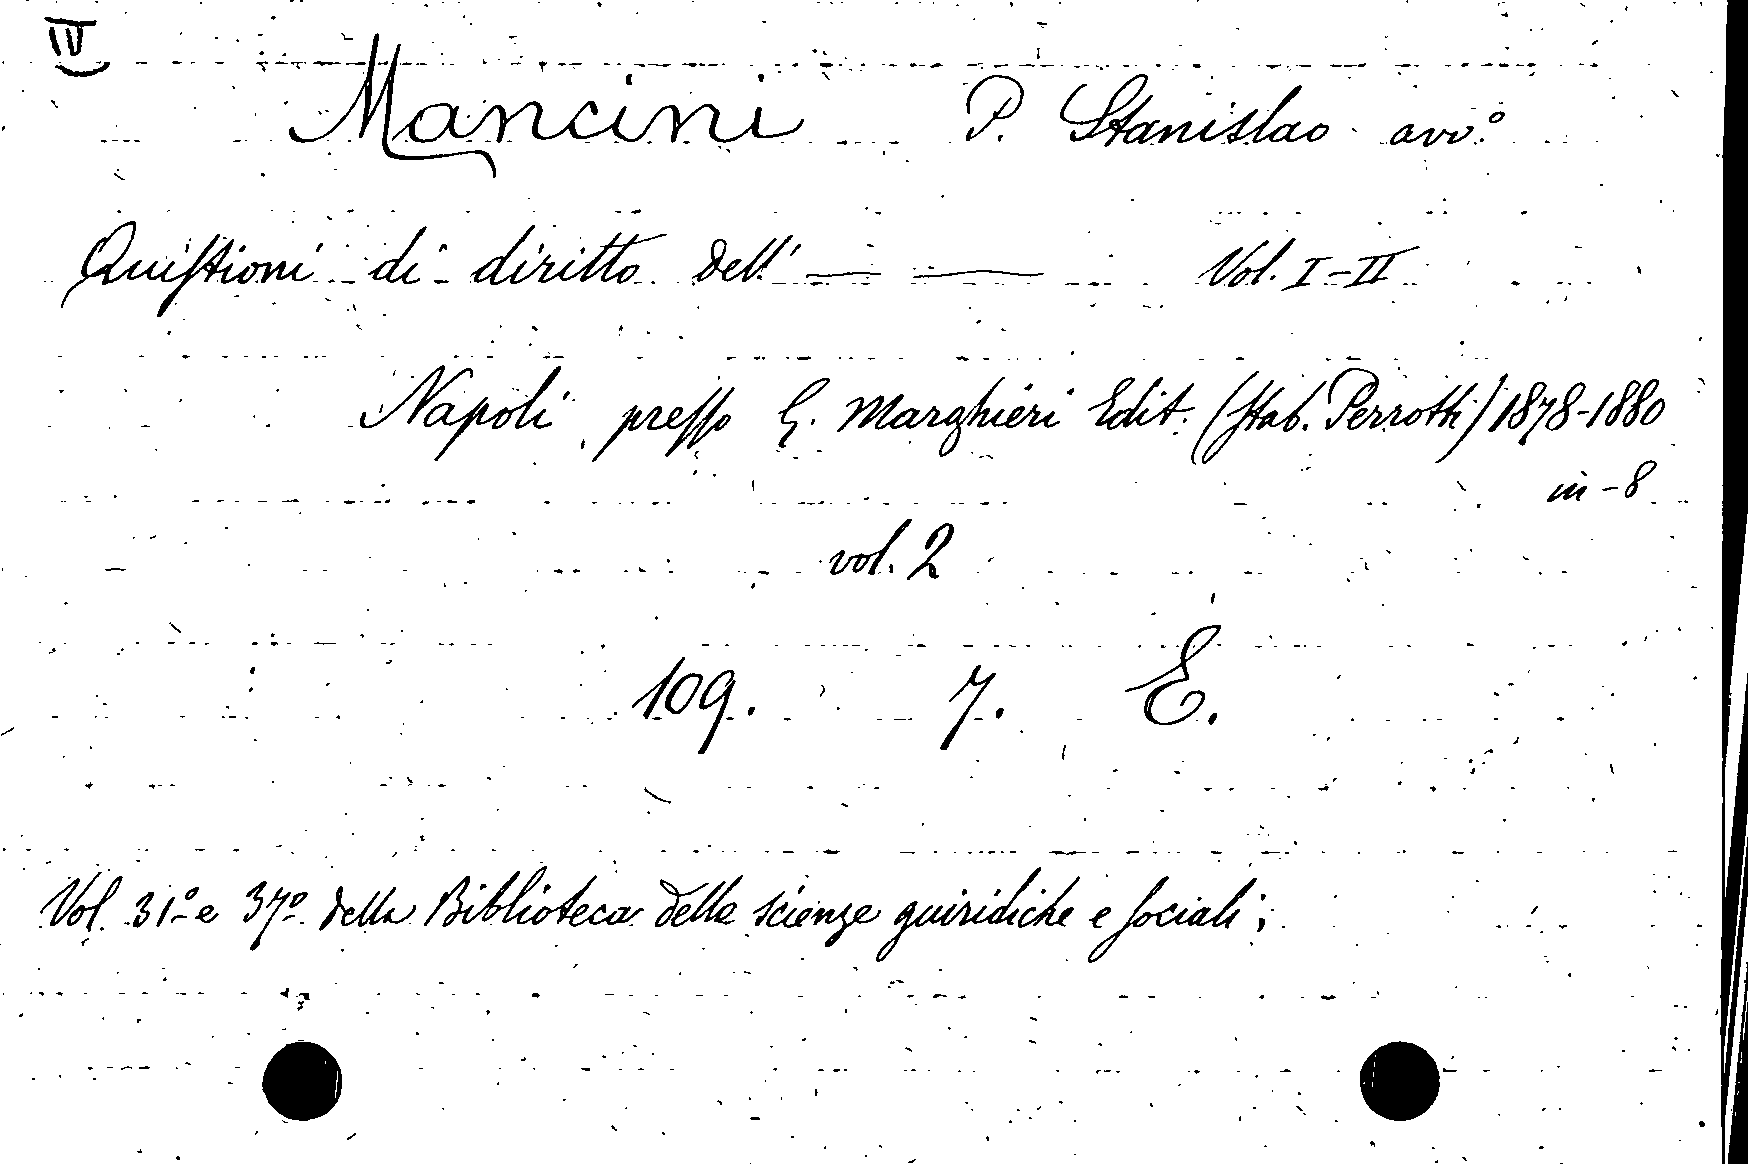 IV
Mancini P. Stanislao avv.º
Quistioni di diritto dell' — — Vol. I-II
Napoli presso G. Marghieri Edit. (Stab. Perrotti) 1878-1880
in-8
vol. 2
109. 7. E.
Vol. 31º e 37º della Biblioteca delle scienze guiridiche e sociali;